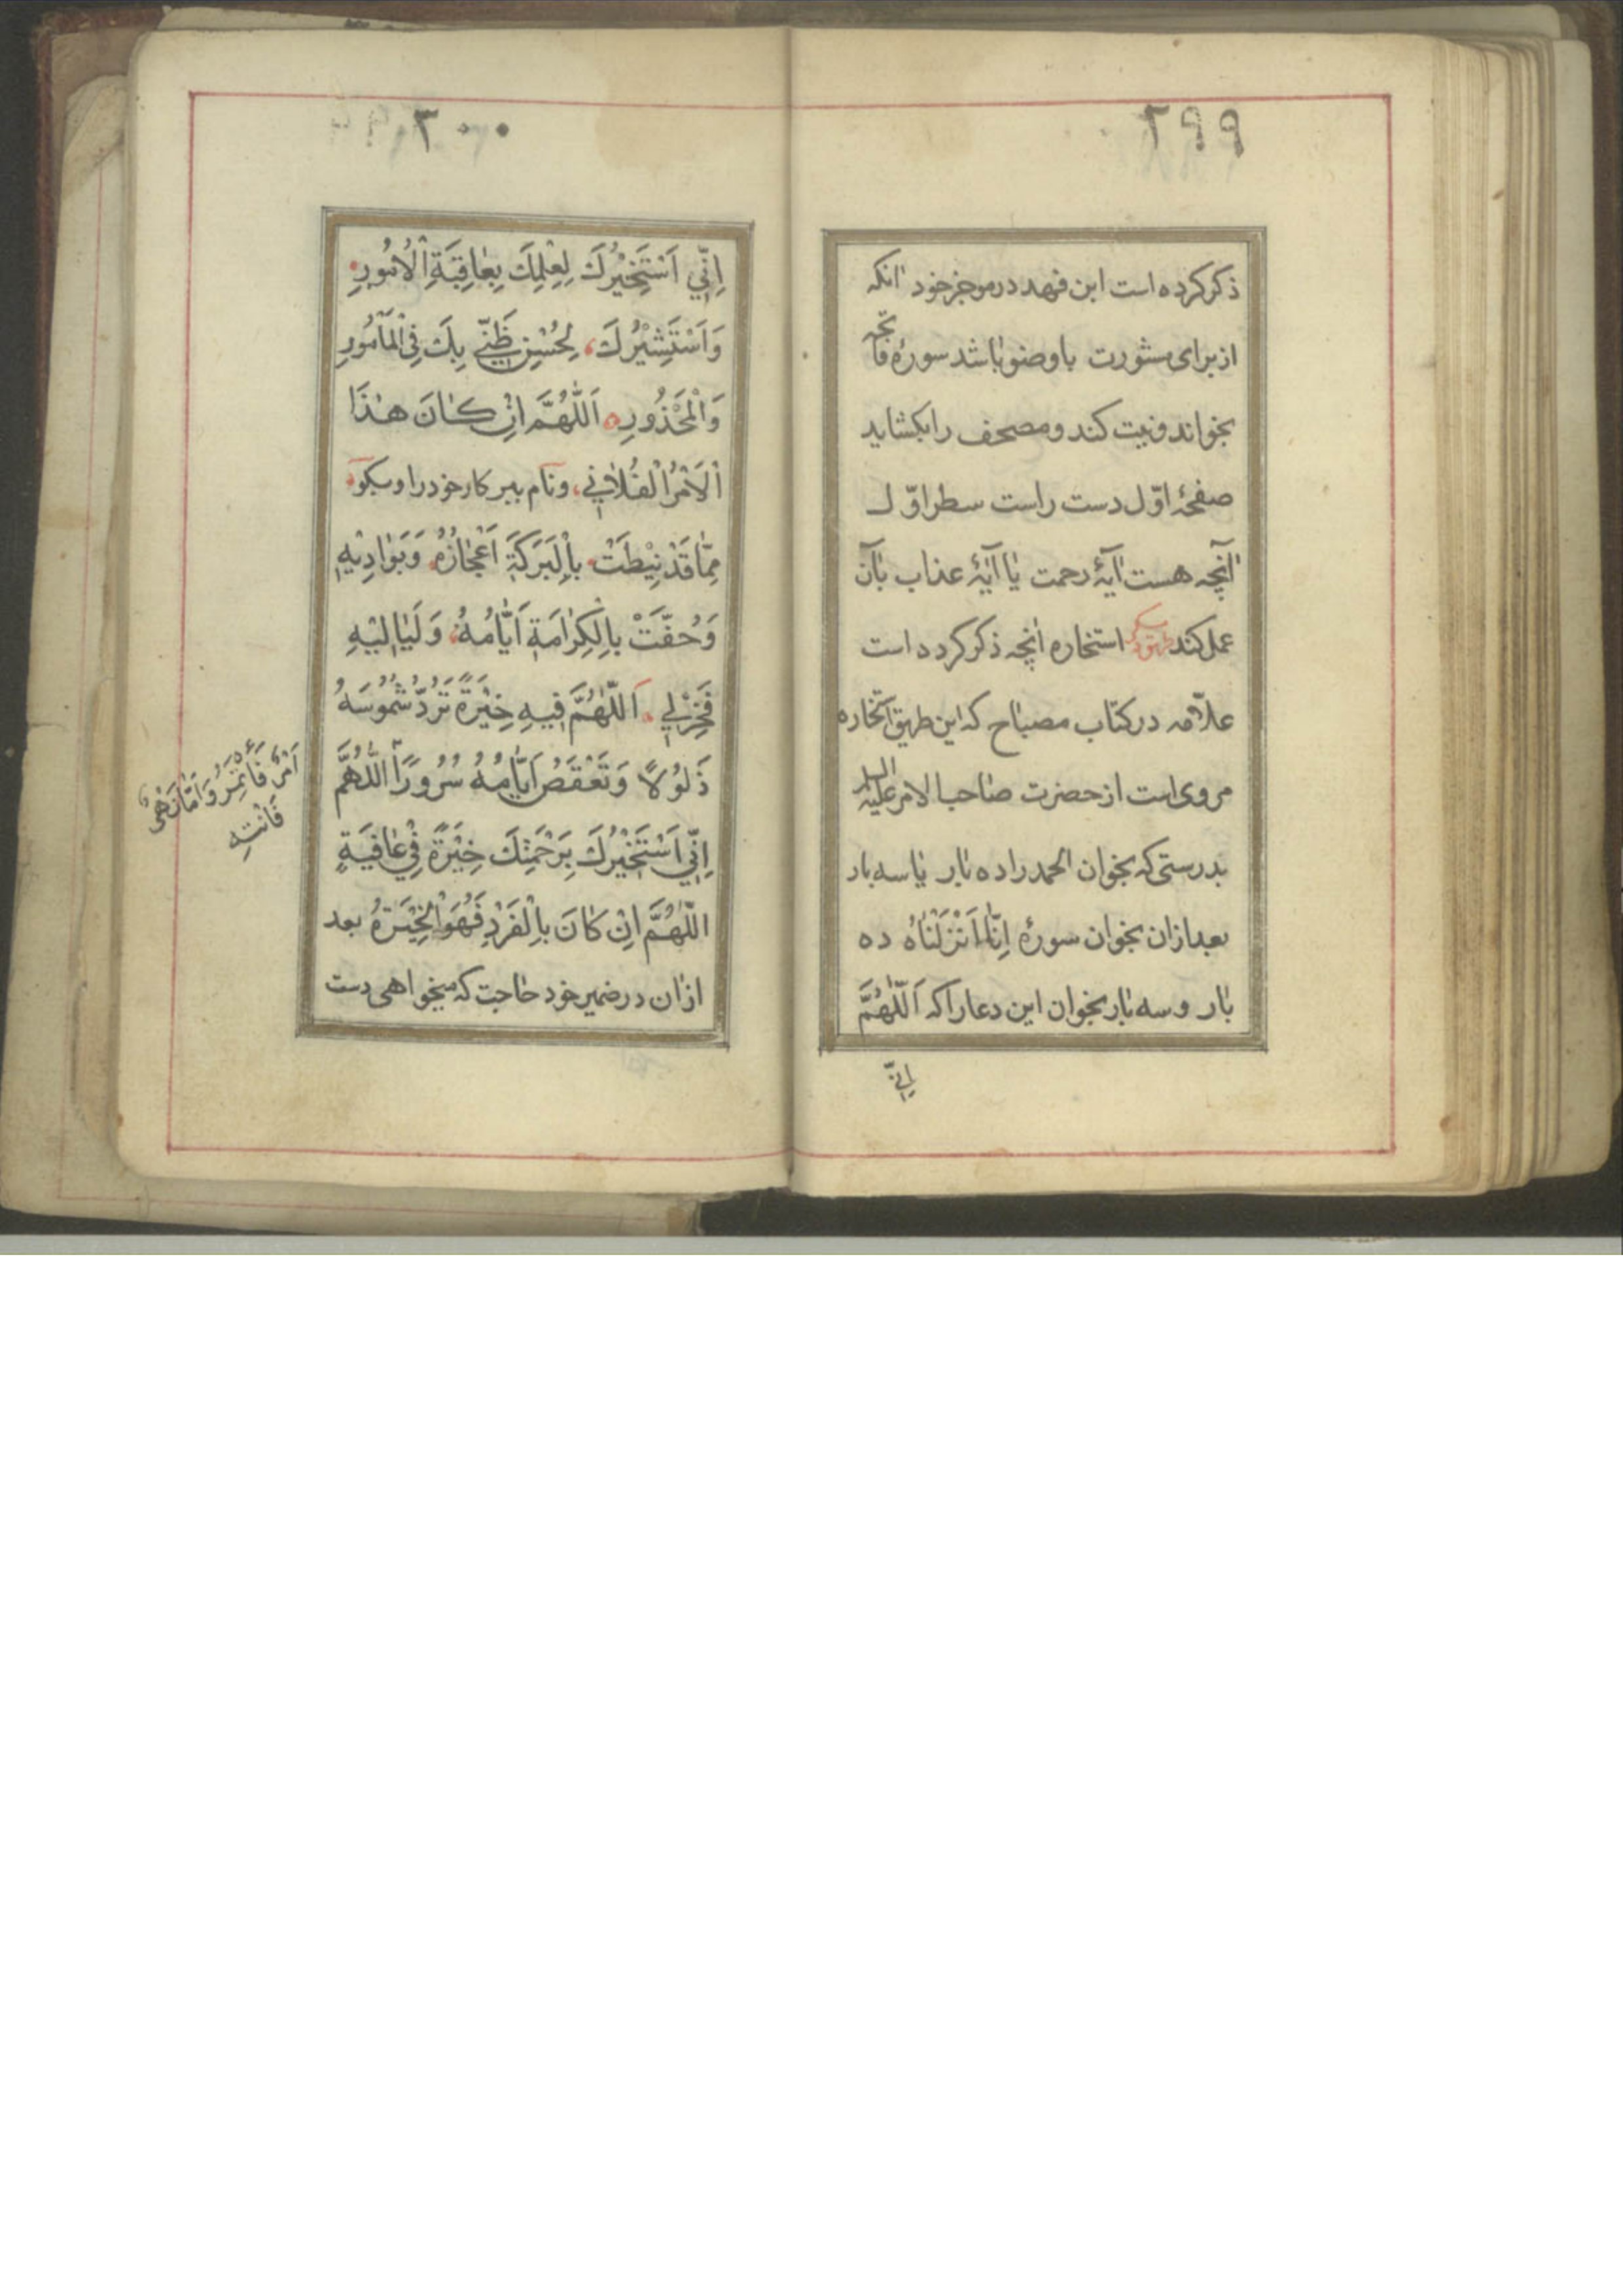 ۲۹۹
ذکر کرده است ابن فهد در موجز خود انکه
از برای مشورت باوضو باشد سورهٔ فاتحه
بخواند و نیت کند و مصحف را بکشاید
صفحهٔ اوّل دست راست سطر اوّل
آنچه هست آیهٔ رحمت یا آیهٔ عذاب بآن
عمل کند طریق دیکر استخاره انچه ذکر کرده است
علّامه در کتاب مصباح که این طریق استخاره
مروی است از حضرت صاحب الامر علیه السلام
بدرستی که بخوان الحمد را ده بار یا سه بار
بعد ازان بخوان سورهٔ اِنّا اَنْزَلْنَاهُ ده
بار و سه بار بخوان این دعا را که اَللّٰهُمَّ
اِنّی
۳۰۰
اِنّي اَسْتَخيْرُكَ لِعِلْمِكَ بِعٰاقِبَةِ الْاُمُورِ
وَاَسْتَشيْرُكَ لِحُسْنِ ظَنّي بِكَ فِي الْمَأمُورِ
وَالْمَحْذُورِ اَللّٰهُمَّ اِنْ كٰانَ هٰذَا
الْاَمْرُ الْفُلاٰني ونام ببر کار خود را و بکو
مِمّٰا قَدْ نِيْطَتْ بِالْبَرَكَةِ اَعْجٰازُهُ وَبَوٰاديْهِ
وَحُفَّتْ بِالْكِرٰامَةِ اَيّٰامُهُ وَلَيٰاليْهِ
فَخِرْلي اَللّٰهُمَّ فيهِ خِيَرَةً تَرُدُّ شُمُوسَهُ
ذَلُولاً وَتَعْقَصُ اَيّٰامُهُ سُرُورًا اَللّٰهُمَّ
اَمْرٌ فَأْتَمِرُ وَاِمّٰا نَهْيٌ
فَاَنْتَهِ
اِنّي اَسْتَخيْرُكَ بِرَحْمَتِكَ خِيَرَةً في عٰافِيَةٍ
اللّٰهُمَّ اِنْ كٰانَ بِالْفَرْدِ فَهُوَ الْخِيَرَةُ بعد
ازان در ضمیر خود حاجت که میخواهی دست